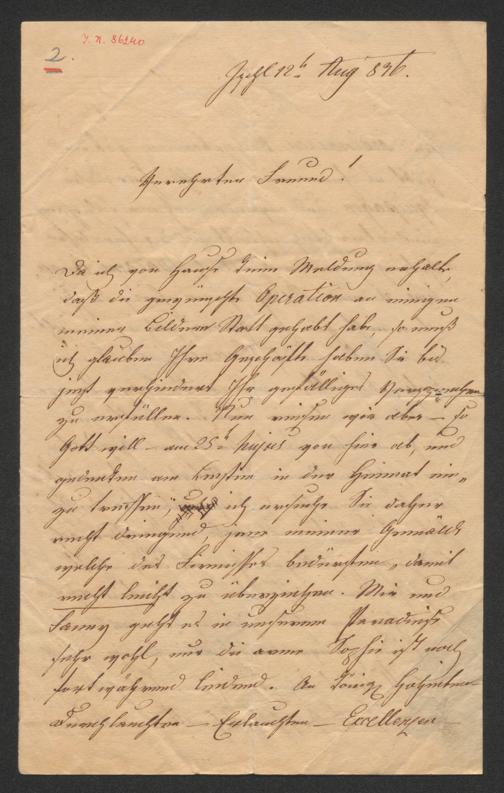 J. N. 86240
2.
Ischl 12t Aug 836.
Verehrter Freund!
Da ich von Hause keine Meldung erhalte,
daß die gewünschte Operation an einigen
meiner Bilder Statt gehabt habe, so muß
ich glauben Ihre Geschäfte haben Sie bis
jetzt verhindert Ihr gefälliges Versprechen
zu erfüllen. Nun reisen wir aber – so
Gott will – am 25t hujus von hier ab, und
gedenken am Ersten in der Heimat ein-
zu treffen, ich ersuche Sie daher
recht dringend, jene meiner Gemälde
welche des Firnisses bedürfen, damit
recht leicht zu überziehen. Mir und
Fanny geht es in unserem Paradiese
sehr wohl, nur die arme Sophie ist noch
fortwährend leidend. An Hoheiten
Durchlauchten – Erlauchten – Excellenzen –